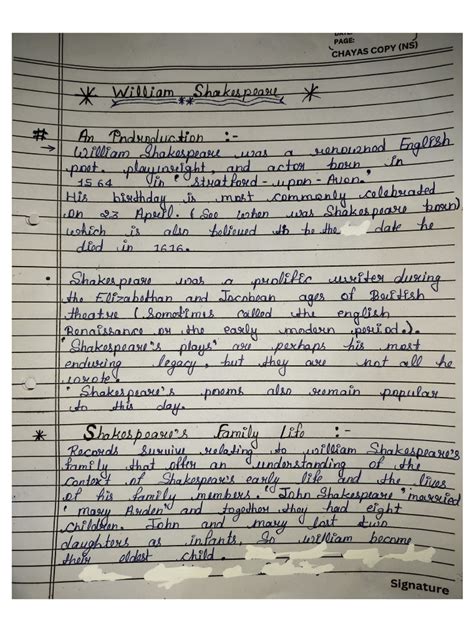 PAGE:
CHAYAS COPY (NS)
* William Shakespeare *
# An Indroduction :-
→ William Shakespeare was a renowned English
poet, playwright, and actor born in
1564 in "stratford-upon-Avon."
His birthday is most commonly celebrated
on 23 April. (See when was Shakespeare born)
which is also believed to be the date he
died in 1616.
• Shakespeare was a prolific writer during
the Elizabethan and Jacobean ages of British
theatre (Sometimes called the english
Renaissance or the early modern period.).
"Shakespeare's plays" are perhaps his most
enduring legacy, but they are not all he
wrote.
Shakespeare's poems also remain popular
to this day.
* Shakespeare's Family Life :-
Records survive relating to william Shakespeare's
family that offer an understanding of the
context of Shakespear's early life and the lives
of his family members. "John Shakespeare" married
"mary Arden" and together they had eight
children. John and mary lost two
daughters as infants, So william become
their eldest child.
Signature